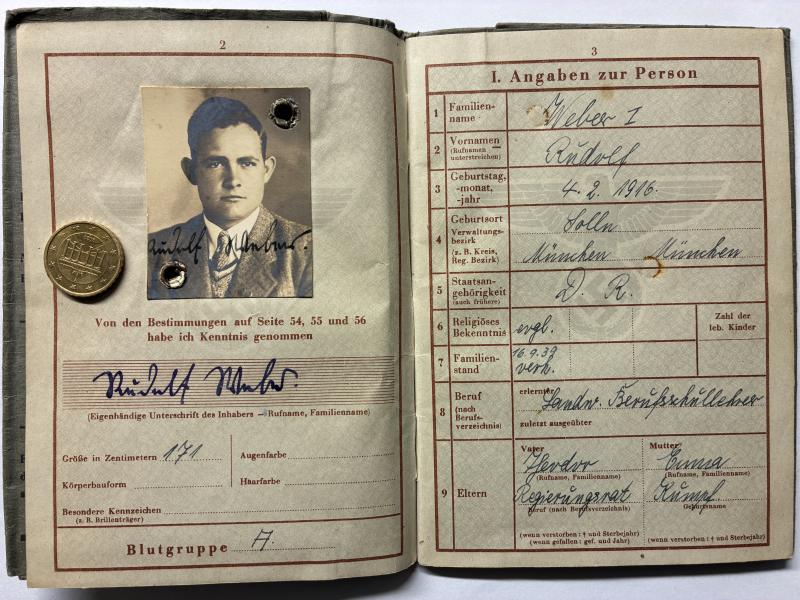 2
Rudolf Weber.
Von den Bestimmungen auf Seite 54, 55 und 56
habe ich Kenntnis genommen
Rudolf Weber.
(Eigenhändige Unterschrift des Inhabers — Rufname, Familienname)
Größe in Zentimetern 171
Augenfarbe
Körperbauform
Haarfarbe
Besondere Kennzeichen
(z. B. Brillenträger)
Blutgruppe A.
3
I. Angaben zur Person
1 Familien-
name
Weber I
2 Vornamen
(Rufnamen
unterstreichen)
Rudolf
3 Geburtstag,
-monat,
-jahr
4. 2. 1916.
4 Geburtsort
Verwaltungs-
bezirk
(z. B. Kreis,
Reg. Bezirk)
Solln
München München
5 Staatsan-
gehörigkeit
(auch frühere)
D. R.
6 Religiöses
Bekenntnis
evgl.
Zahl der
leb. Kinder
7 Familien-
stand
16.9.39
verh.
8 Beruf
(nach
Berufs-
verzeichnis)
erlernter
Landw. Berufsschullehrer
zuletzt ausgeübter
9 Eltern
Vater
Theodor
(Rufname, Familienname)
Regierungsrat
Beruf (nach Berufsverzeichnis)
(wenn verstorben: † und Sterbejahr)
(wenn gefallen: gef. und Jahr)
Mutter
Emma
(Rufname, Familienname)
Kumpf
Geburtsname
(wenn verstorben: † und Sterbejahr)